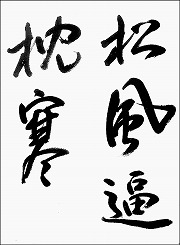 松風逼
枕寒